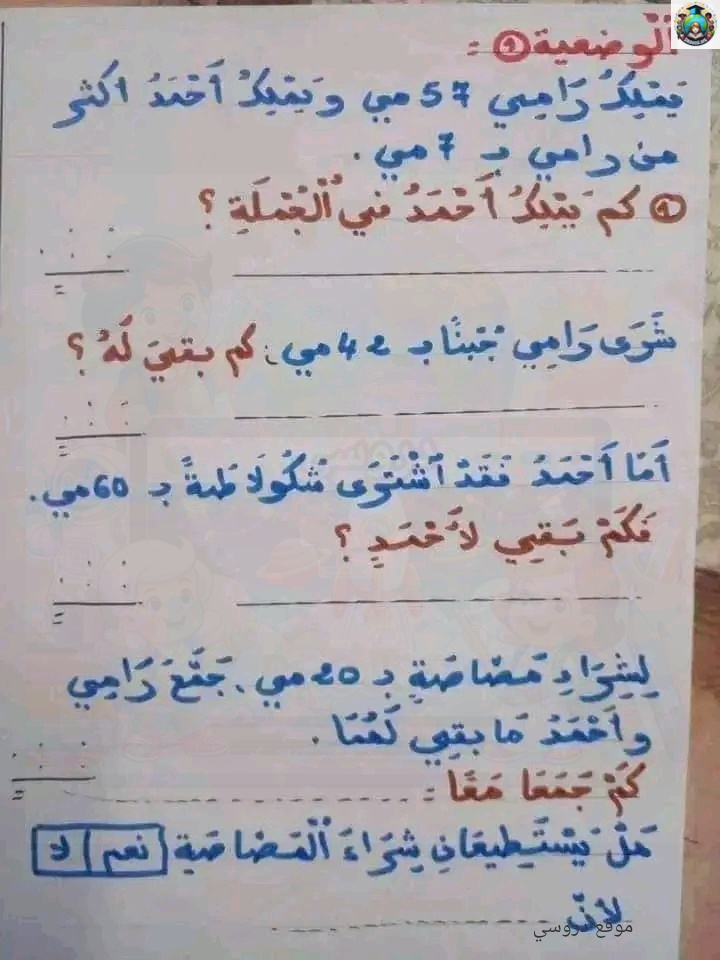 الْوضعية ① :
يَمْلِكُ رَامِي 57 مي ويَمْلِكُ أَحْمَدُ اكثر
من رامي بـ 7 مي .
① كم يَمْلِكُ أَحْمَدُ في الْجُمْلَةِ ؟
شَرَى رَامِي جُبْنًا بـ 42 مي : كم بقيَ لَهُ ؟
أَمَّا أَحْمَدُ فَقَدْ اشْتَرَى شُكُولَاطَةً بـ 60 مي.
فَكَمْ بَقِي لأَحْمَدٍ ؟
لِشِرَاءِ مَصَّاصَةٍ بـ 20 مي ، جَمَّعَ رَامِي
وأَحْمَدُ مَا بقِي لَهُمَا .
كَمْ جَمَعَا مَعًا :
هَلْ يَسْتَطِيعَانِ شِرَاءَ الْمَصَّاصَةِ نعم لا
لأنّ
موقع دروسي